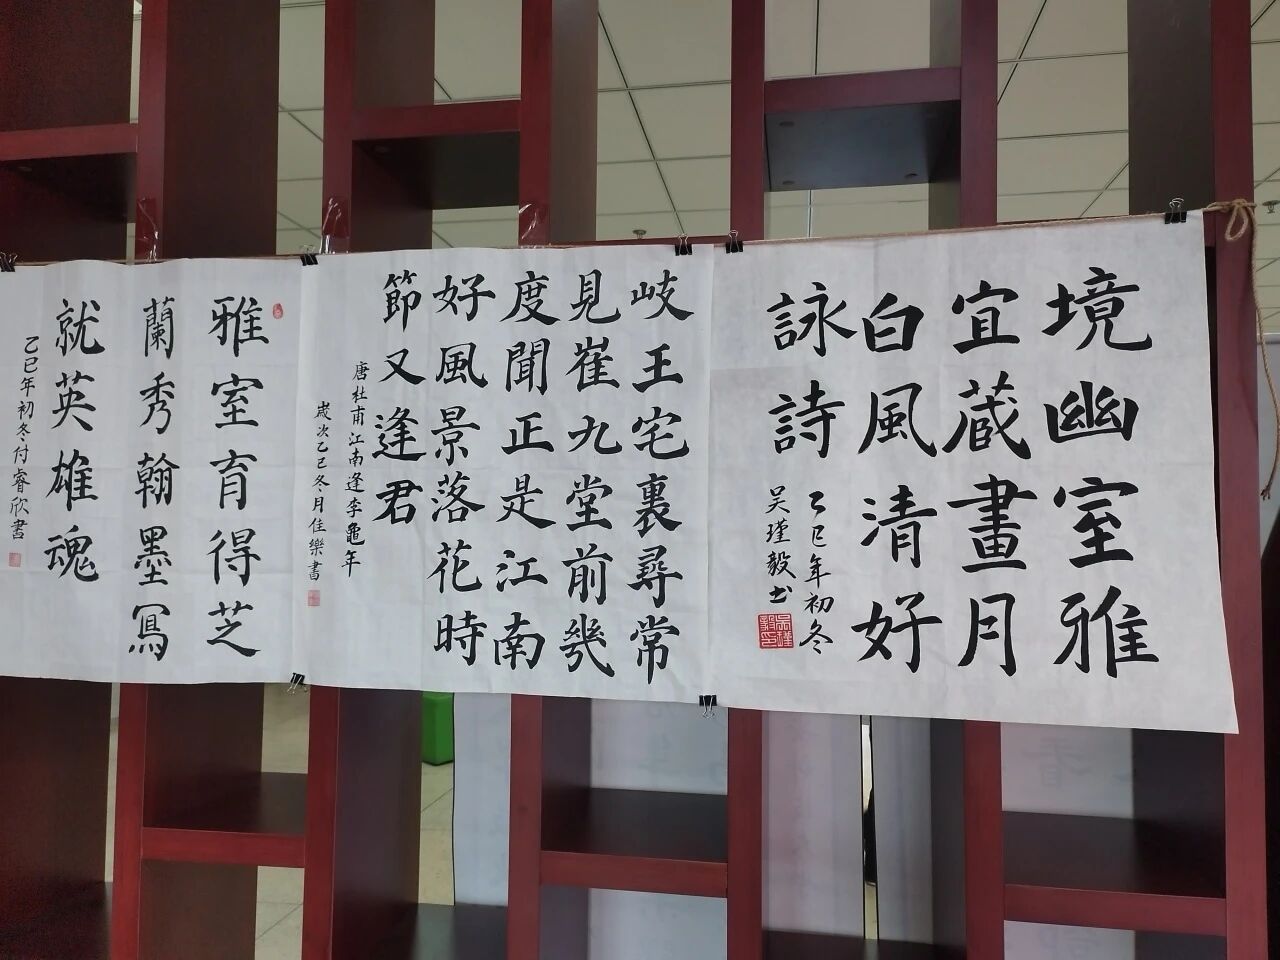 境幽室雅
宜蔵畫月
白風清好
詠詩
乙巳年初冬
吴瑾毅书
岐王宅裏尋常
見崔九堂前幾
度聞正是江南
好風景落花時
節又逢君
唐杜甫江南逢李龜年
歲次乙巳冬月佳樂書
雅室育得芝
蘭秀翰墨寫
就英雄魂
乙巳年初冬付睿欣書